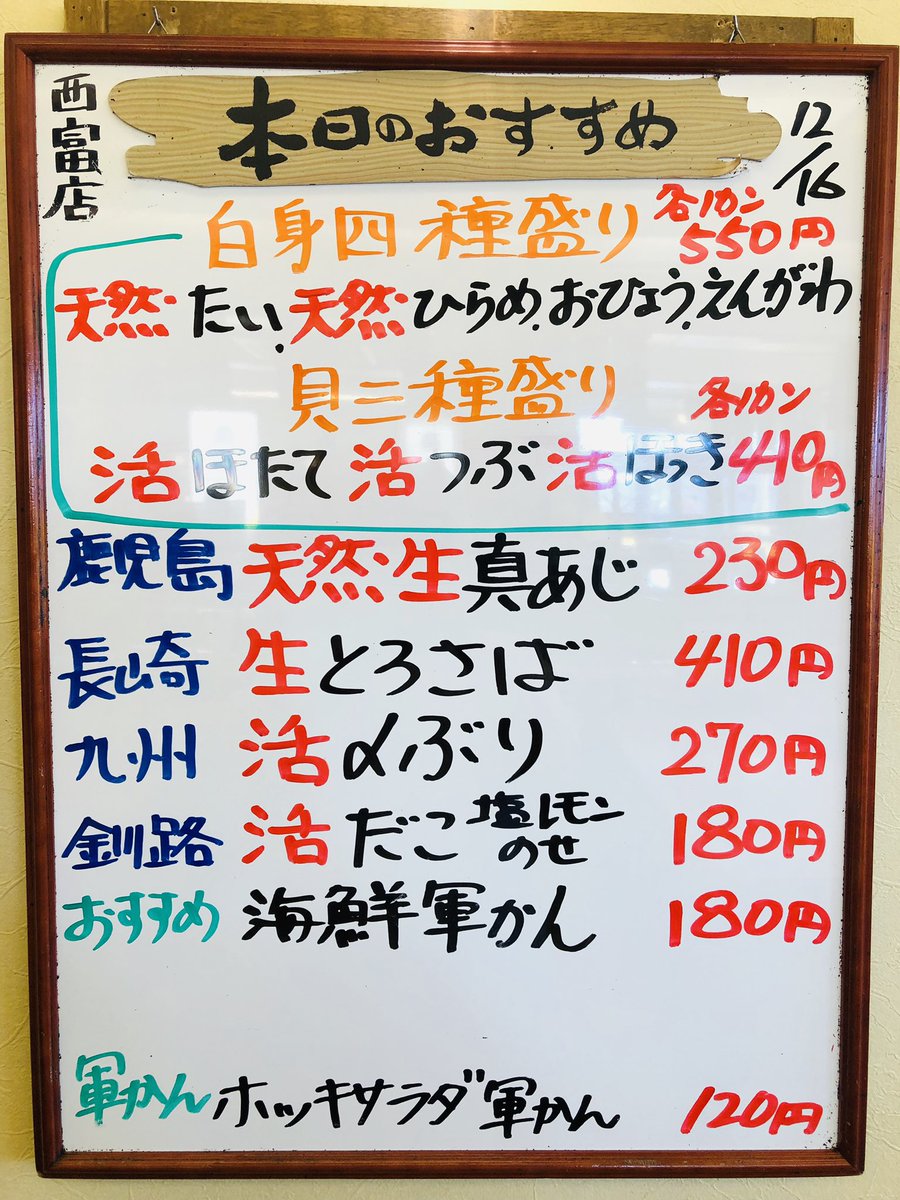 西富店
本日のおすすめ
12/16
白身四種盛り 各1カン 550円
天然たい、天然ひらめ、おひょう、えんがわ
貝三種盛り 各1カン
活ほたて 活つぶ 活ほっき 410円
鹿児島 天然生真あじ 230円
長崎 生とろさば 410円
九州 活〆ぶり 270円
釧路 活だこ 塩レモンのせ 180円
おすすめ 海鮮軍かん 180円
軍かん ホッキサラダ軍かん 120円